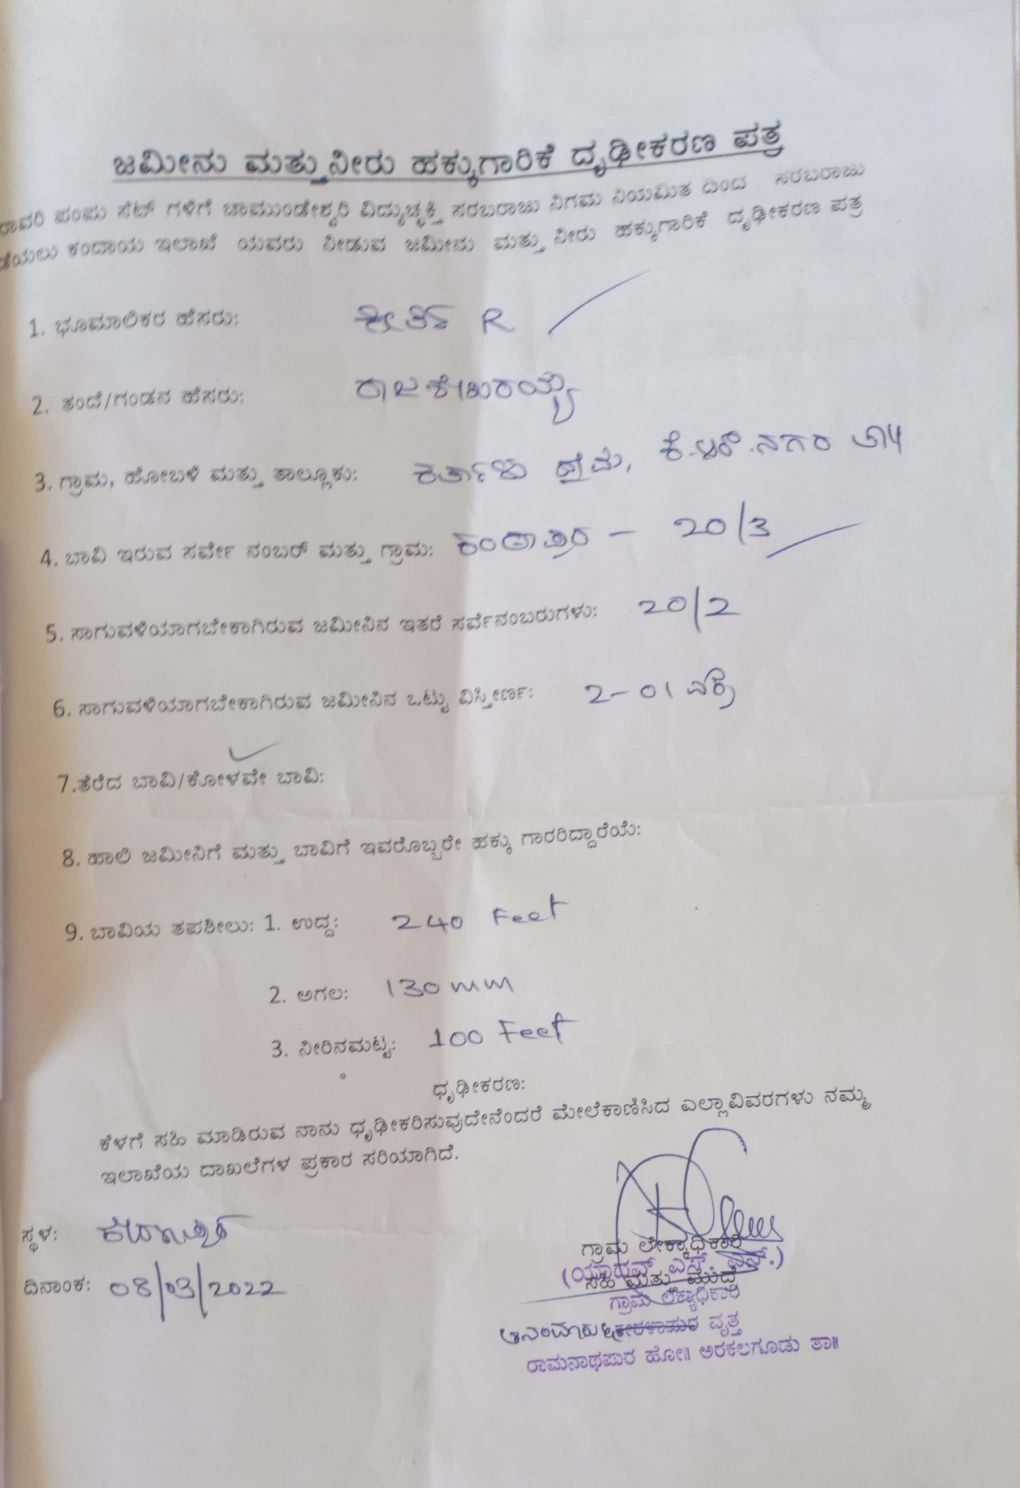 ಜಮೀನು ಮತ್ತು ನೀರು ಹಕ್ಕುಗಾರಿಕೆ ದೃಢೀಕರಣ ಪತ್ರ
ರಾವರಿ ಪಂಪು ಸೆಟ್ ಗಳಿಗೆ ಚಾಮುಂಡೇಶ್ವರಿ ವಿದ್ಯುಚ್ಛಕ್ತಿ ಸರಬರಾಜು ನಿಗಮ ನಿಯಮಿತ ದಿಂದ ಸರಬರಾಜು
ಡೆಯಲು ಕಂದಾಯ ಇಲಾಖೆ ಯವರು ನೀಡುವ ಜಮೀನು ಮತ್ತು ನೀರು ಹಕ್ಕುಗಾರಿಕೆ ದೃಢೀಕರಣ ಪತ್ರ
1. ಭೂಮಾಲಿಕರ ಹೆಸರು: R
2. ತಂದೆ/ಗಂಡನ ಹೆಸರು: ರಾಜಶೇಖರಯ್ಯ
3. ಗ್ರಾಮ, ಹೋಬಳಿ ಮತ್ತು ತಾಲ್ಲೂಕು: ಕರ್ತಾಳು ಗ್ರಾಮ, ಕೆ.ಆರ್.ನಗರ ತಾ॥
4. ಬಾವಿ ಇರುವ ಸರ್ವೇ ನಂಬರ್ ಮತ್ತು ಗ್ರಾಮ: – 20/3
5. ಸಾಗುವಳಿಯಾಗಬೇಕಾಗಿರುವ ಜಮೀನಿನ ಇತರೆ ಸರ್ವೆನಂಬರುಗಳು: 20/2
6. ಸಾಗುವಳಿಯಾಗಬೇಕಾಗಿರುವ ಜಮೀನಿನ ಒಟ್ಟು ವಿಸ್ತೀರ್ಣ: 2-01 ಎಕ್ರೆ
7.ತೆರೆದ ಬಾವಿ/ಕೋಳವೇ ಬಾವಿ:
8. ಹಾಲಿ ಜಮೀನಿಗೆ ಮತ್ತು ಬಾವಿಗೆ ಇವರೊಬ್ಬರೇ ಹಕ್ಕು ಗಾರರಿದ್ದಾರೆಯೆ:
9. ಬಾವಿಯ ತಪಶೀಲು: 1. ಉದ್ದ: 240 Feet
2. ಅಗಲ: 130 mm
3. ನೀರಿನಮಟ್ಟ: 100 Feet
ಧೃಢೀಕರಣ:
ಕೆಳಗೆ ಸಹಿ ಮಾಡಿರುವ ನಾನು ಧೃಢೀಕರಿಸುವುದೇನೆಂದರೆ ಮೇಲೆಕಾಣಿಸಿದ ಎಲ್ಲಾವಿವರಗಳು ನಮ್ಮ
ಇಲಾಖೆಯ ದಾಖಲೆಗಳ ಪ್ರಕಾರ ಸರಿಯಾಗಿದೆ.
ಸ್ಥಳ:
ದಿನಾಂಕ: 08/03/2022
ಗ್ರಾಮ ಲೇಕ್ಕಾಧಿಕಾರಿ
(ಯಾದವ್ ಎಸ್. ಎನ್.)
ಸಹಿ ಮತ್ತು ಮುದ್ರೆ
ಗ್ರಾಮ ಲೆಕ್ಕಾಧಿಕಾರಿ
ವೃತ್ತ
ರಾಮನಾಥಪುರ ಹೋ॥ ಅರಕಲಗೂಡು ತಾ॥